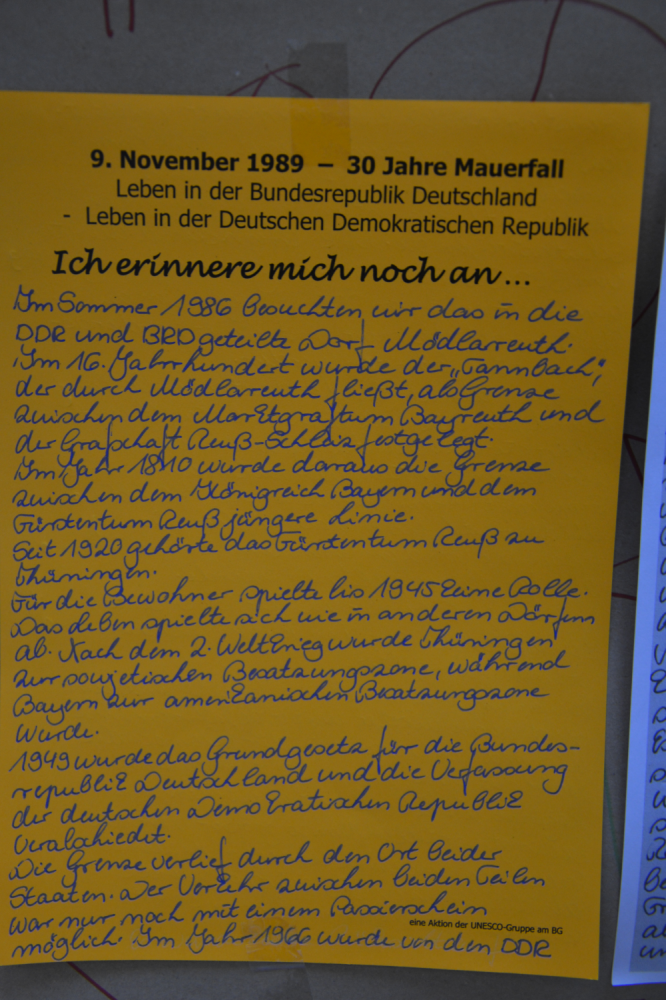 9. November 1989 – 30 Jahre Mauerfall
Leben in der Bundesrepublik Deutschland
- Leben in der Deutschen Demokratischen Republik
Ich erinnere mich noch an...
Im Sommer 1986 besuchten wir das in die
DDR und BRD geteilte Dorf Mödlarreuth.
Im 16. Jahrhundert wurde der „Tannbach",
der durch Mödlarreuth fließt, als Grenze
zwischen dem Markgraftum Bayreuth und
der Grafschaft Reuß-Schleiz festgelegt.
Im Jahr 1810 wurde daraus die Grenze
zwischen dem Königreich Bayern und dem
Fürstentum Reuß jüngere Linie.
Seit 1920 gehörte das Fürstentum Reuß zu
Thüringen.
Für die Bewohner spielte bis 1945 keine Rolle.
Das Leben spielte sich wie in anderen Dörfern
ab. Nach dem 2. Weltkrieg wurde Thüringen
zur sowjetischen Besatzungszone, während
Bayern zur amerikanischen Besatzungszone
wurde.
1949 wurde das Grundgesetz für die Bundes-
republik Deutschland und die Verfassung
der deutschen Demokratischen Republik
verabschiedet.
Die Grenze verlief durch den Ort beider
Staaten. Der Verkehr zwischen beiden Teilen
war nur noch mit einem Passierschein
eine Aktion der UNESCO-Gruppe am BG
möglich. Im Jahr 1966 wurde von den DDR